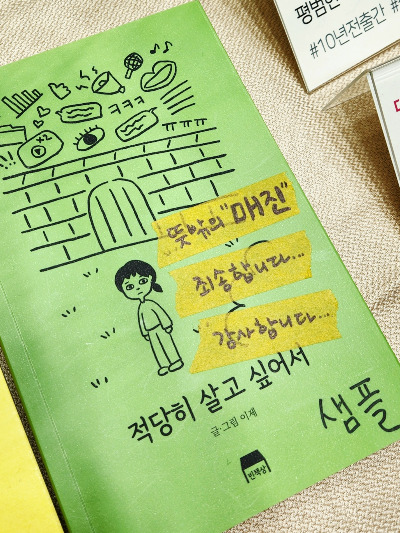 평범한
#10년전출간
ㅋㅋㅋ
x2
ㅠㅠㅠ
뜻밖의 "매진"
죄송합니다...
감사합니다...
적당히 살고 싶어서
글·그림 이제
빈책상
샘플